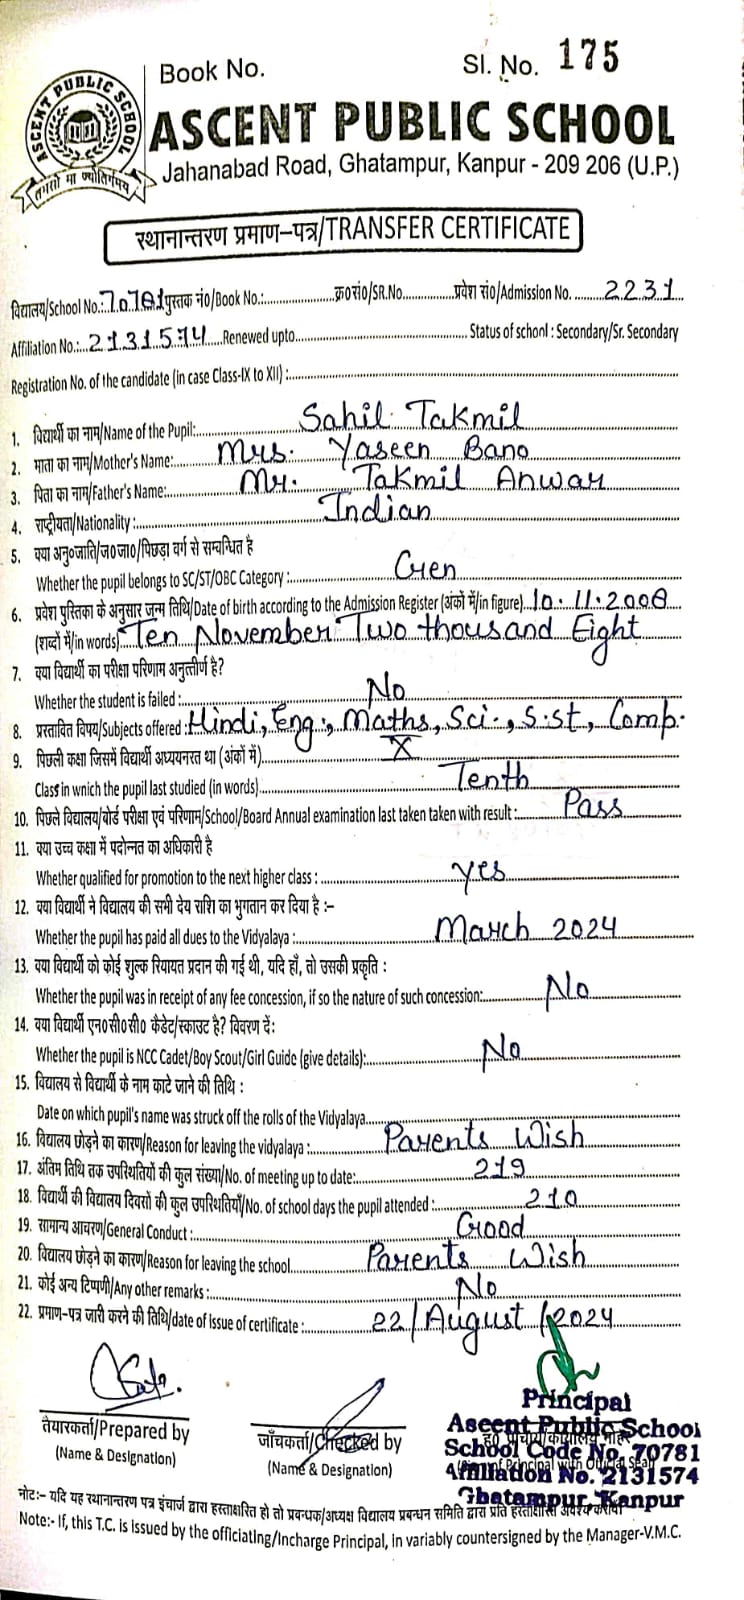 Book No.
Sl. No. 175
ASCENT PUBLIC SCHOOL
तमसो मा ज्योतिर्गमय
ASCENT PUBLIC SCHOOL
Jahanabad Road, Ghatampur, Kanpur - 209 206 (U.P.)
स्थानान्तरण प्रमाण-पत्र/TRANSFER CERTIFICATE
विद्यालय/School No.: 70781 पुस्तक नं0/Book No.:..........क्र0सं0/SR.No..........प्रवेश सं0/Admission No. 2231
Affiliation No.: 2131574 Renewed upto..........Status of school : Secondary/Sr. Secondary
Registration No. of the candidate (in case Class-IX to XII) :..........
1. विद्यार्थी का नाम/Name of the Pupil: Sahil Takmil
2. माता का नाम/Mother's Name: Mrs. Yaseen Bano
3. पिता का नाम/Father's Name: Mr. Takmil Anwar
4. राष्ट्रीयता/Nationality : Indian
5. क्या अनु०जाति/ज०जा०/पिछड़ा वर्ग से सम्बन्धित है
Whether the pupil belongs to SC/ST/OBC Category : Gen
6. प्रवेश पुस्तिका के अनुसार जन्म तिथि/Date of birth according to the Admission Register (अंकों में/in figure) 10.11.2008
(शब्दों में/in words) Ten November Two thousand Eight
7. क्या विद्यार्थी का परीक्षा परिणाम अनुत्तीर्ण है?
Whether the student is failed : No
8. प्रस्तावित विषय/Subjects offered : Hindi, Eng., Maths, Sci., S.st, Comp.
9. पिछली कक्षा जिसमें विद्यार्थी अध्ययनरत था (अंकों में) X
Class in wnich the pupil last studied (in words) Tenth
10. पिछले विद्यालय/बोर्ड परीक्षा एवं परिणाम/School/Board Annual examination last taken taken with result : Pass
11. क्या उच्च कक्षा में पदोन्नत का अधिकारी है
Whether qualified for promotion to the next higher class : yes
12. क्या विद्यार्थी ने विद्यालय की सभी देय राशि का भुगतान कर दिया है :-
Whether the pupil has paid all dues to the Vidyalaya : March 2024
13. क्या विद्यार्थी को कोई शुल्क रियायत प्रदान की गई थी, यदि हाँ, तो उसकी प्रकृति :
Whether the pupil was in receipt of any fee concession, if so the nature of such concession: No
14. क्या विद्यार्थी एन०सी०सी० कैडेट/स्काउट है? विवरण दें:
Whether the pupil is NCC Cadet/Boy Scout/Girl Guide (give details): No
15. विद्यालय से विद्यार्थी के नाम काटे जाने की तिथि :
Date on which pupil's name was struck off the rolls of the Vidyalaya..........
16. विद्यालय छोड़ने का कारण/Reason for leaving the vidyalaya : Parents Wish
17. अंतिम तिथि तक उपस्थितियों की कुल संख्या/No. of meeting up to date: 219
18. विद्यार्थी की विद्यालय दिवसों की कुल उपस्थितियाँ/No. of school days the pupil attended : 210
19. सामान्य आचरण/General Conduct : Good
20. विद्यालय छोड़ने का कारण/Reason for leaving the school Parents Wish
21. कोई अन्य टिप्पणी/Any other remarks : No
22. प्रमाण-पत्र जारी करने की तिथि/date of issue of certificate : 22/August/2024
तैयारकर्ता/Prepared by
(Name & Designation)
जाँचकर्ता/Checked by
(Name & Designation)
Principal
Ascent Public School
School Code No. 70781
Affiliation No. 2131574
Ghatampur, Kanpur
नोट:- यदि यह स्थानान्तरण पत्र इंचार्ज द्वारा हस्ताक्षरित हो तो प्रबन्धक/अध्यक्ष विद्यालय प्रबन्धन समिति द्वारा प्रति हस्ताक्षरित अवश्य करायें
Note:- If, this T.C. is issued by the officiating/Incharge Principal, in variably countersigned by the Manager-V.M.C.